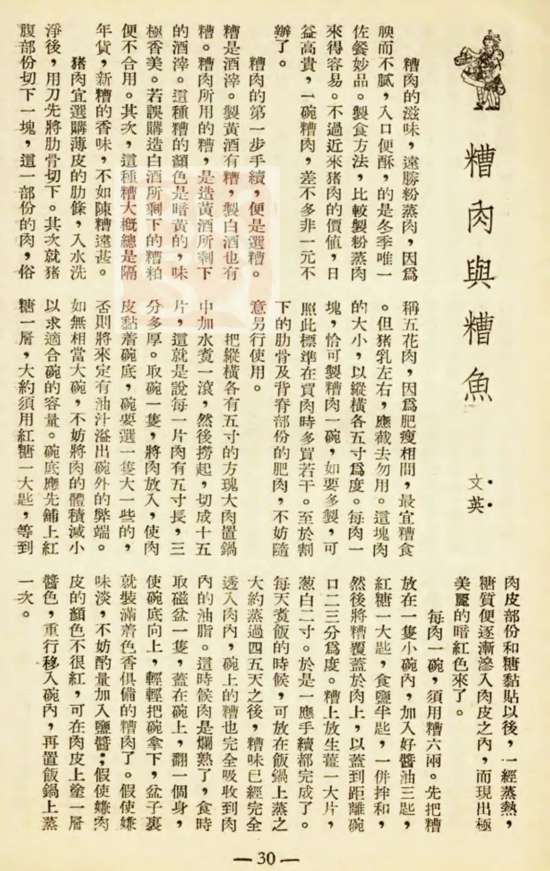 糟肉與糟魚
文英
糟肉的滋味，遠勝粉蒸肉，因爲
腴而不膩，入口便酥，的是冬季唯一
佐餐妙品。製食方法，比較製粉蒸肉
來得容易。不過近來猪肉的價値，日
益高貴，一碗糟肉，差不多非一元不
辦了。
糟肉的第一步手續，便是選糟。
糟是酒滓。製黃酒有糟，製白酒也有
糟。糟肉所用的糟，是造黃酒所剩下
的酒滓。這種糟的顏色是暗黃的，味
極香美。若誤購造白酒所剩下的糟粕
便不合用。其次，這種糟大概總是隔
年貨，新糟的香味，不如陳糟遠甚。
猪肉宜選購薄皮的肋條，入水洗
淨後，用刀先將肋骨切下。其次就猪
腹部份切下一塊，這一部份的肉，俗
稱五花肉，因爲肥瘦相間，最宜糟食
。但猪乳左右，應截去勿用。這塊肉
的大小，以縱橫各五寸爲度。每肉一
塊，恰可製糟肉一碗，如要多製，可
照此標準在買肉時多買若干。至於割
下的肋骨及背脊部份的肥肉，不妨隨
意另行使用。
把縱橫各有五寸的方塊大肉置鍋
中加水煑一滾，然後撈起，切成十五
片，這就是說每一片肉有五寸長，三
分多厚。取碗一隻，將肉放入，使肉
皮黏着碗底，碗要選一隻大一些的，
否則將來定有油汁溢出碗外的弊端。
如無相當大碗，不妨將肉的體積減小
以求適合碗的容量。碗底應先鋪上紅
糖一層，大約須用紅糖一大匙，等到
肉皮部份和糖黏貼以後，一經蒸熱，
糖質便逐漸滲入肉皮之內，而現出極
美麗的暗紅色來了。
每肉一碗，須用糟六兩。先把糟
放在一隻小碗內，加入好醬油三匙，
紅糖一大匙，食鹽半匙，一併拌和，
然後將糟覆蓋於肉上，以蓋到距離碗
口二三分爲度。糟上放生薑一大片，
葱白二寸。於是一應手續都完成了。
每天煑飯的時候，可放在飯鍋上蒸之
大約蒸過四五天之後，糟味已經完全
透入肉內，碗上的糟也完全吸收到肉
內的油脂。這時候肉是爛熟了，食時
取磁盆一隻，蓋在碗上，翻一個身，
使碗底向上，輕輕把碗拿下，盆子裏
就裝滿着色香俱備的糟肉了。假使嫌
味淡，不妨酌量加入鹽醬；假使嫌肉
皮的顏色不很紅，可在肉皮上塗一層
醬色，重行移入碗內，再置飯鍋上蒸
一次。
—30—